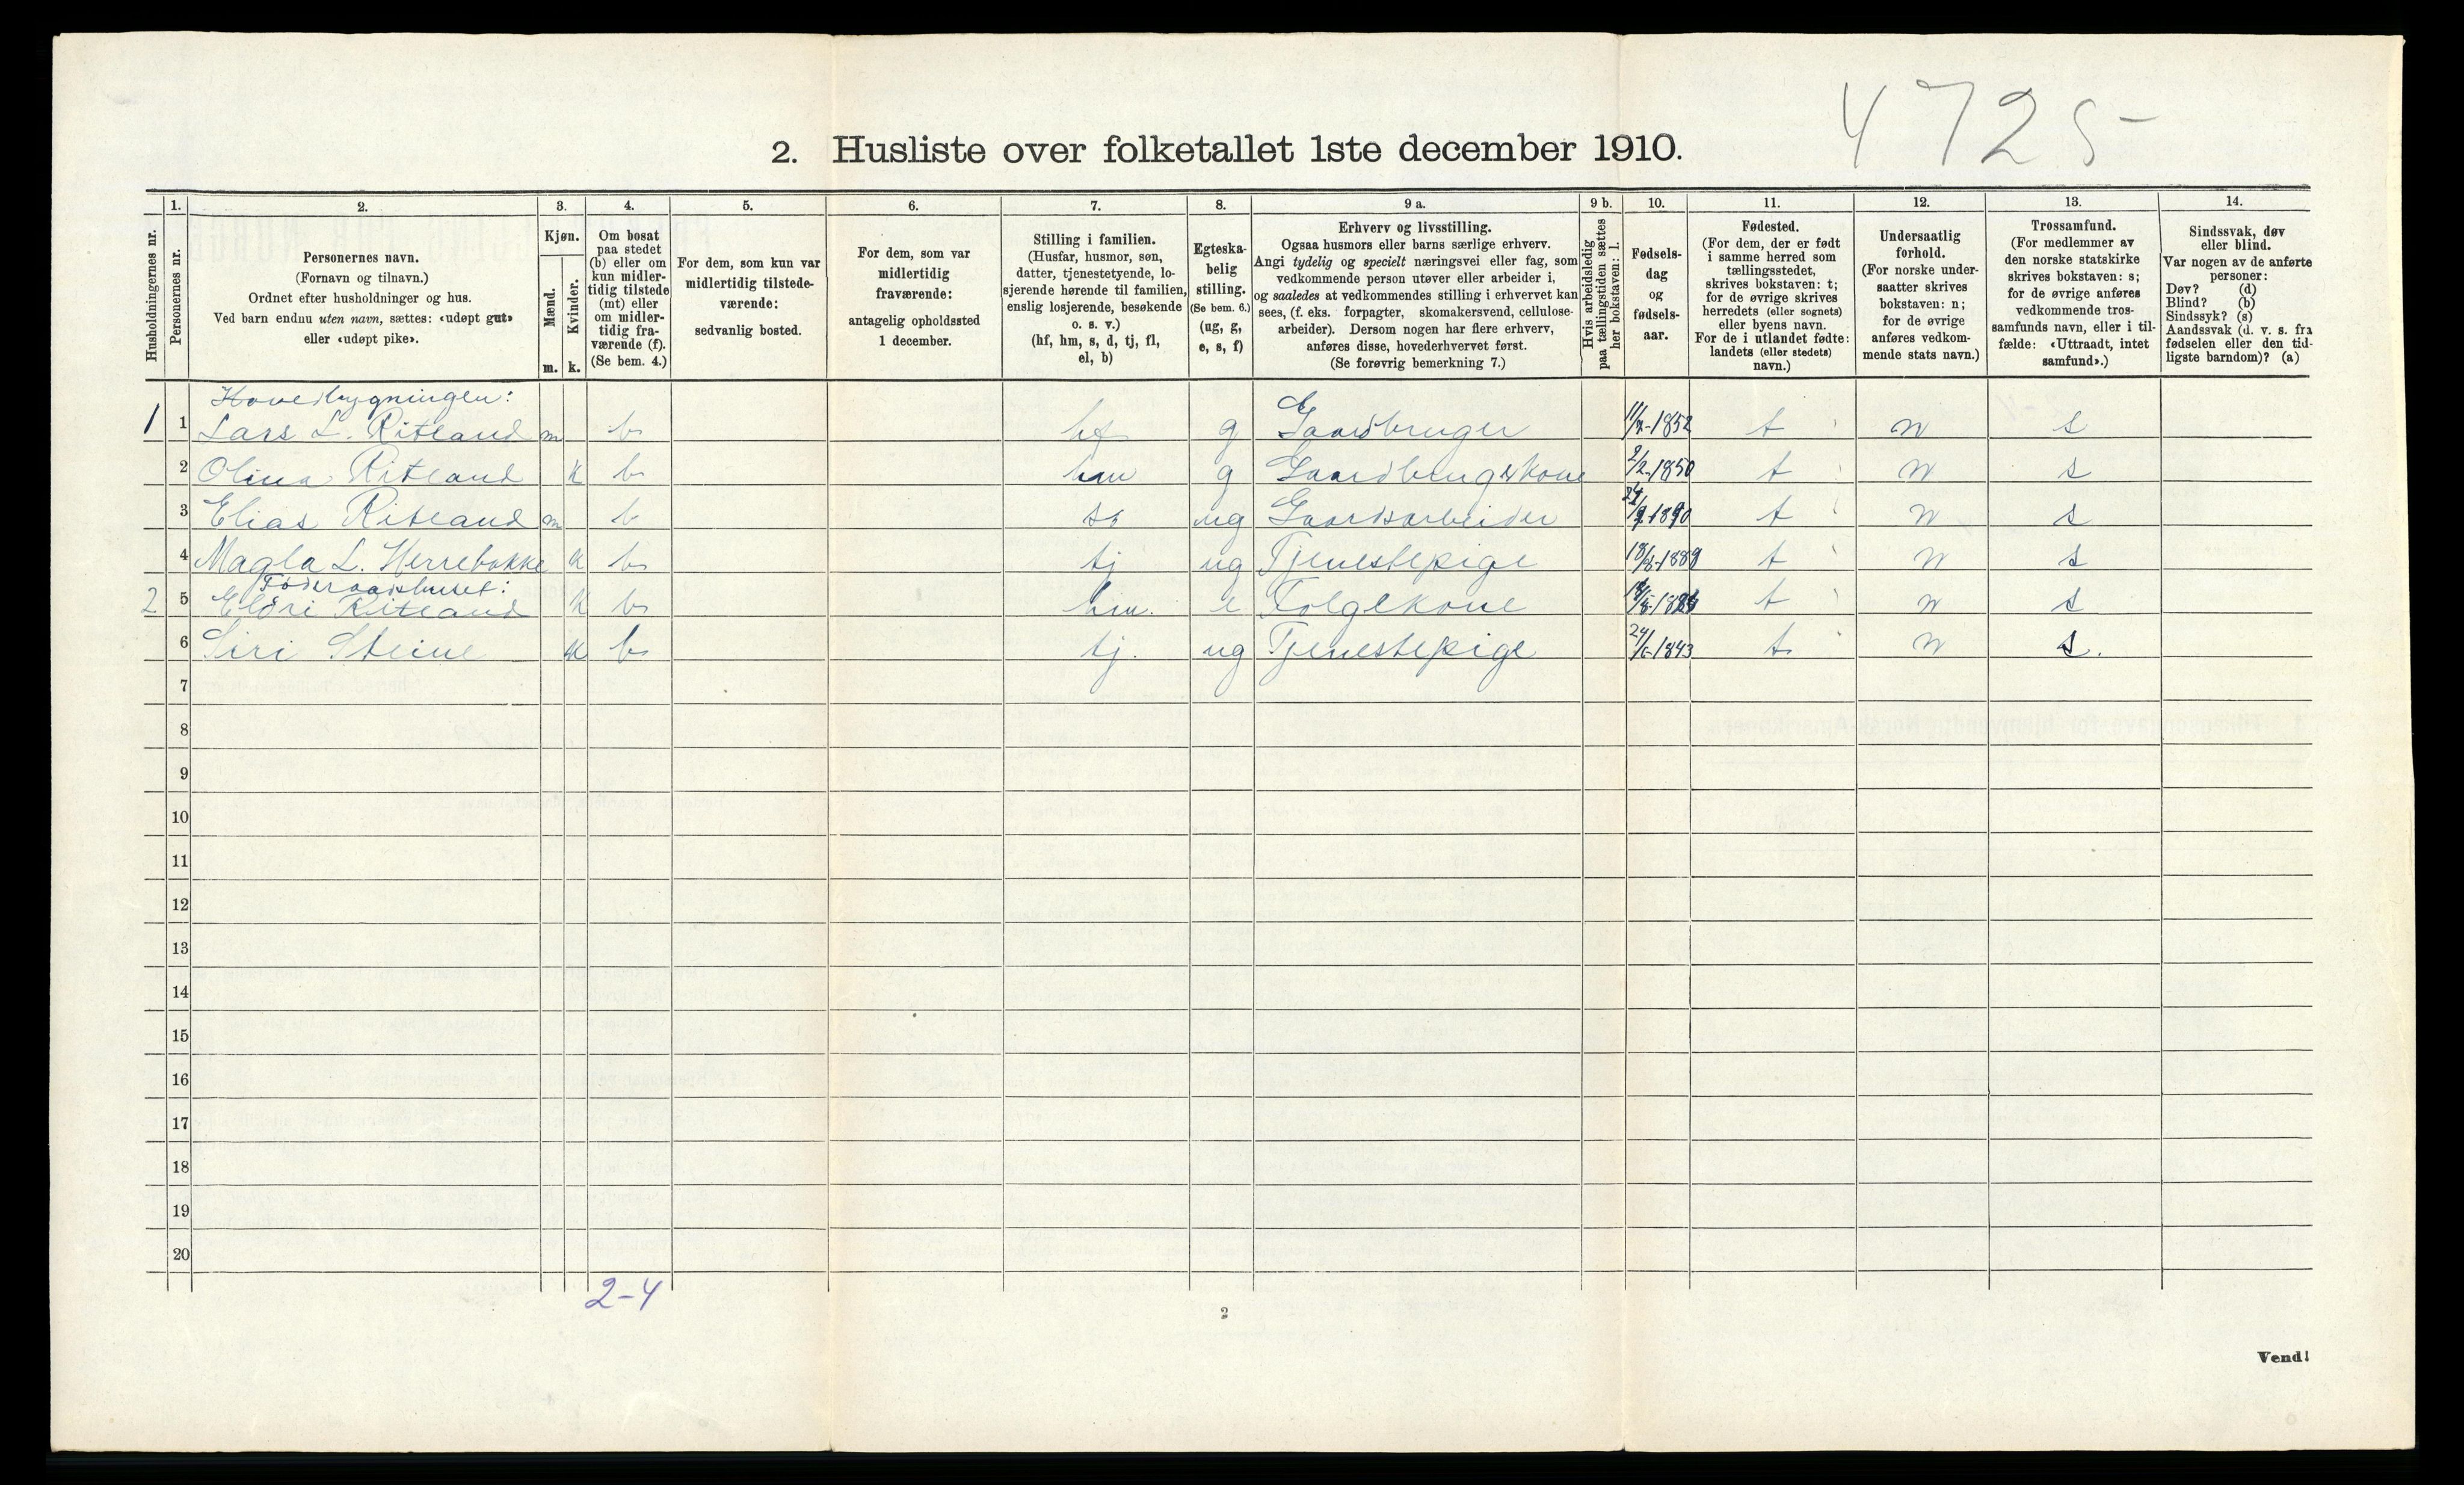 4725-
2. Husliste over folketallet 1ste december 1910.
Husholdningernes nr.
1.
Personernes nr.
2.
Personernes navn.
(Fornavn og tilnavn.)
Ordnet efter husholdninger og hus.
Ved barn endnu uten navn, sættes: «udøpt gut»
eller «udøpt pike».
3.
Kjøn.
Mænd.
m.
Kvinder.
k.
4.
Om bosat
paa stedet
(b) eller om
kun midler-
tidig tilstede
(mt) eller
om midler-
tidig fra-
værende (f).
(Se bem. 4.)
5.
For dem, som kun var
midlertidig tilstede-
værende:
sedvanlig bosted.
6.
For dem, som var
midlertidig
fraværende:
antagelig opholdssted
1 december.
7.
Stilling i familien.
(Husfar, husmor, søn,
datter, tjenestetyende, lo-
sjerende hørende til familien,
enslig losjerende, besøkende
o. s. v.)
(hf, hm, s, d, tj, fl,
el, b)
8.
Egteska-
belig
stilling.
(Se bem. 6.)
(ug, g,
e, s, f)
9 a.
Erhverv og livsstilling.
Ogsaa husmors eller barns særlige erhverv.
Angi tydelig og specielt næringsvei eller fag, som
vedkommende person utøver eller arbeider i,
og saaledes at vedkommendes stilling i erhvervet kan
sees, (f. eks. forpagter, skomakersvend, cellulose-
arbeider). Dersom nogen har flere erhverv,
anføres disse, hovederhvervet først.
(Se forøvrig bemerkning 7.)
9 b.
Hvis arbeidsledig
paa tællingstiden sættes
her bokstaven: l.
10.
Fødsels-
dag
og
fødsels-
aar.
11.
Fødested.
(For dem, der er født
i samme herred som
tællingsstedet,
skrives bokstaven: t;
for de øvrige skrives
herredets (eller sognets)
eller byens navn.
For de i utlandet fødte:
landets (eller stedets)
navn.)
12.
Undersaatlig
forhold.
(For norske under-
saatter skrives
bokstaven: n;
for de øvrige
anføres vedkom-
mende stats navn.)
13.
Trossamfund.
(For medlemmer av
den norske statskirke
skrives bokstaven: s;
for de øvrige anføres
vedkommende tros-
samfunds navn, eller i til-
fælde: «Uttraadt, intet
samfund».)
14.
Sindssvak, døv
eller blind.
Var nogen av de anførte
personer:
Døv? (d)
Blind? (b)
Sindssyk? (s)
Aandssvak (d. v. s. fra
fødselen eller den tid-
ligste barndom)? (a)
Hovedbygningen:
1 1 Lars L. Riteland m b hf g Gaardbruger 1852 t n s
2 Olina Riteland k b hm g Gaardbrugerkone 2/2-1850 t n s
3 Elias Riteland m b s ug Gaardsarbeider 1890 t n s
4 Magla L. Herrebokke k b tj ug Tjenestepige 18/8-1889 t n s
Føderaadshuset:
2 5 Eldri Riteland k b hm. e Folgekone t n s
6 Siri Steine k b tj. ug Tjenestepige 1843 t n s.
7
8
9
10
11
12
13
14
15
16
17
18
19
20
2-4
2
Vend!